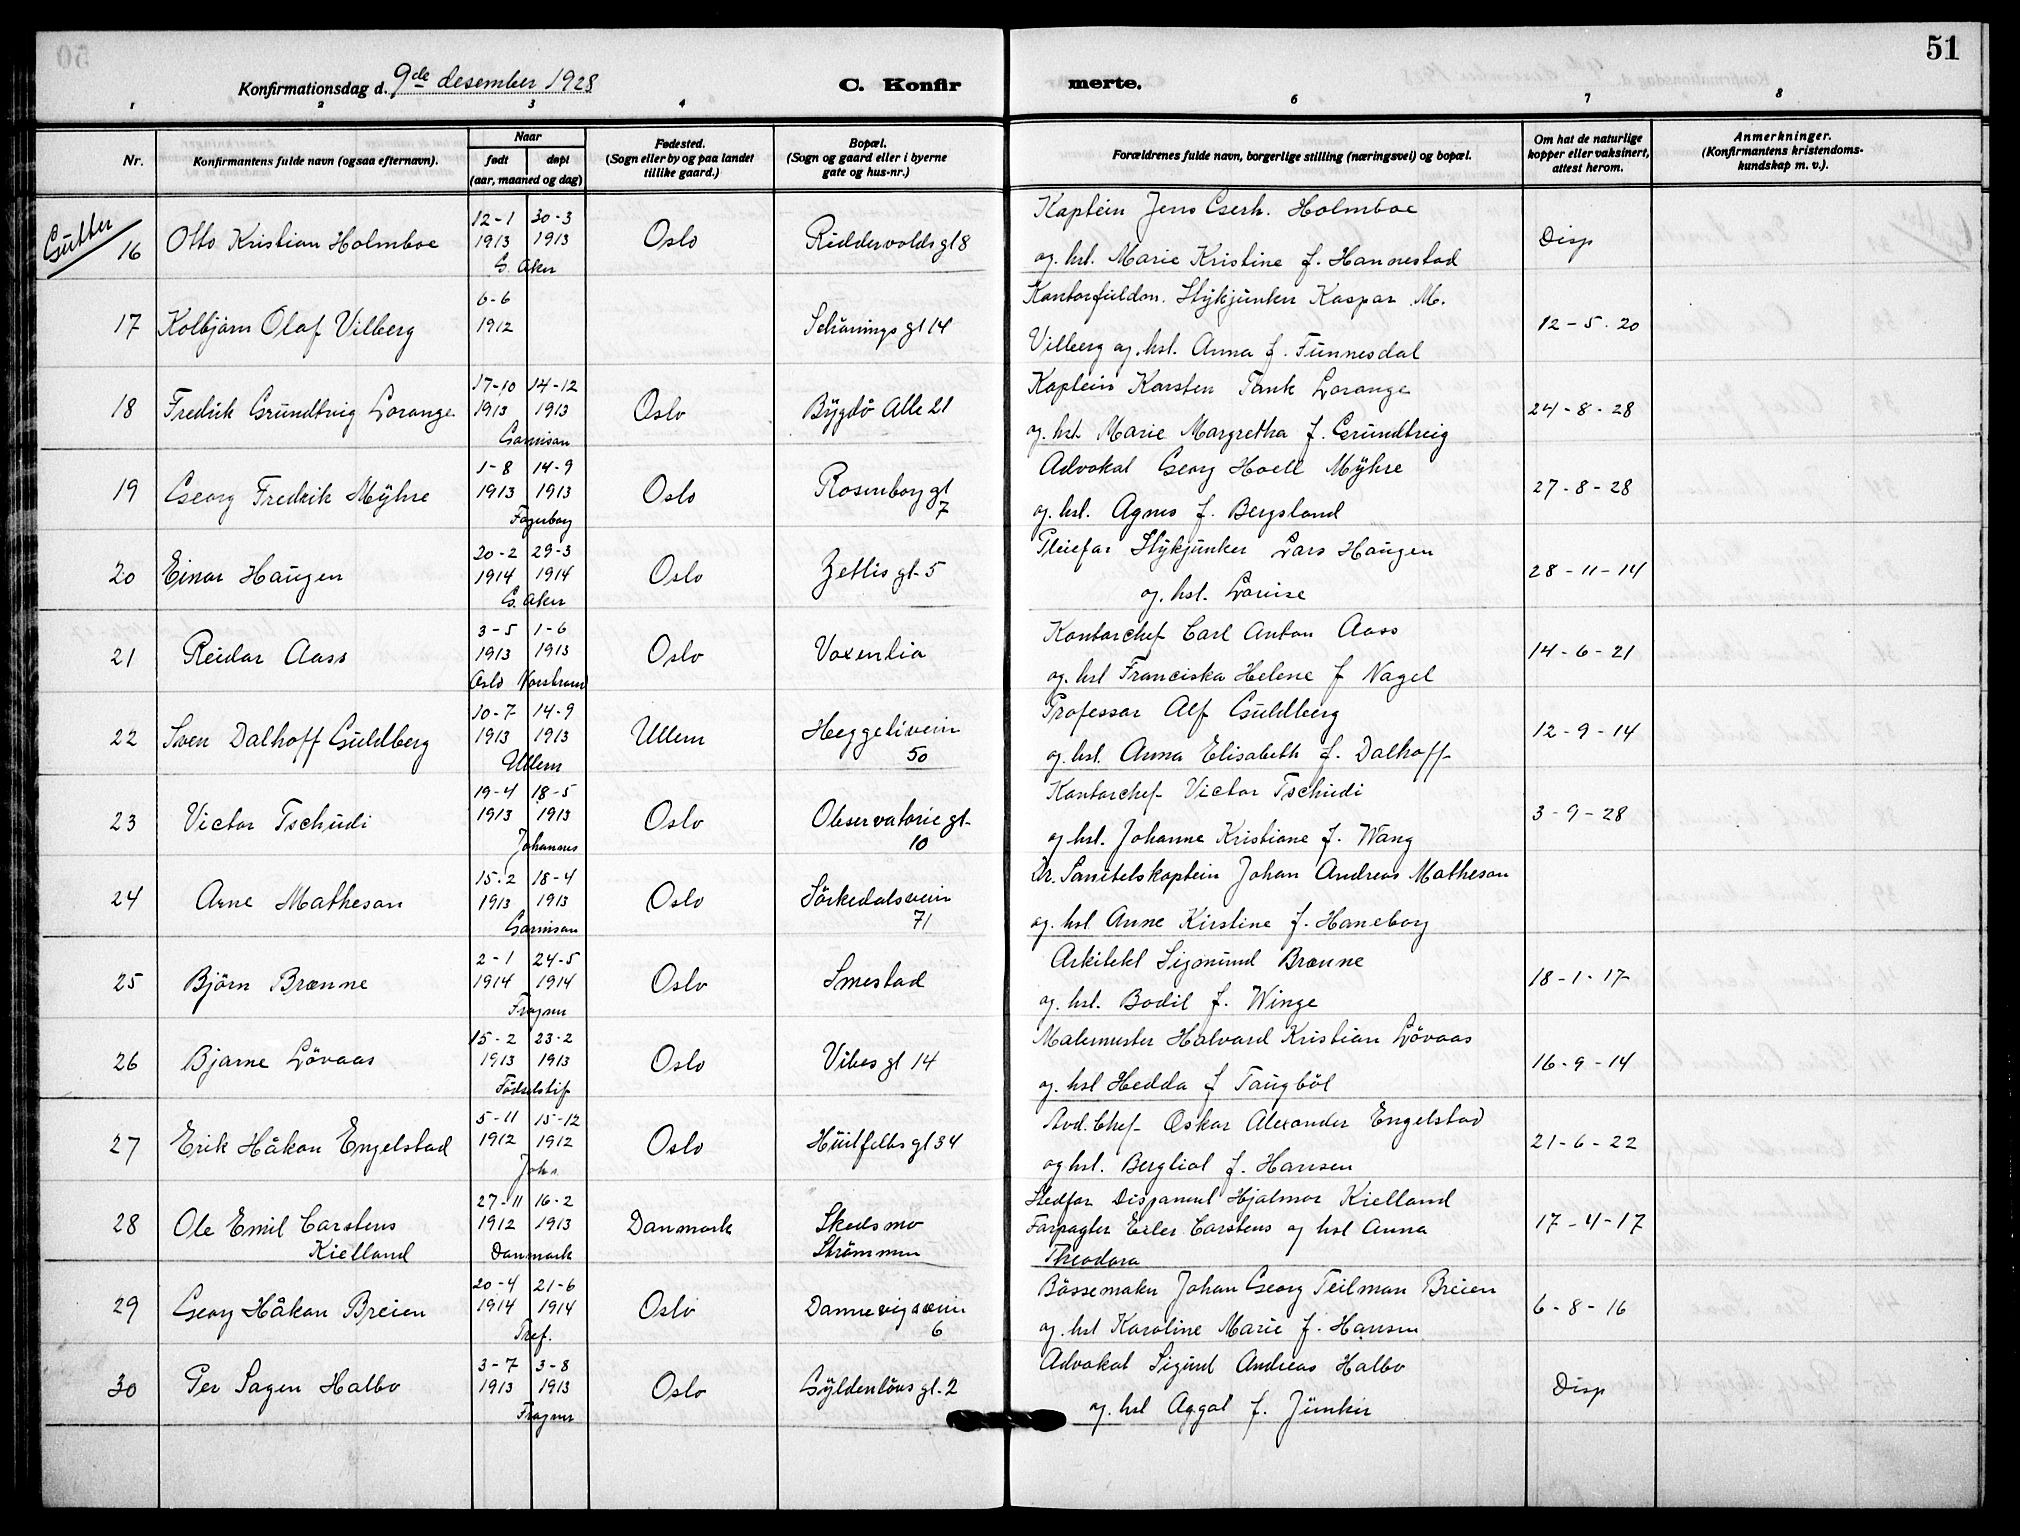 50
51
Konfirmationsdag d. 9de desember 1928
C. Konfir merte.
1 2 3 4 6 7 8
Nr.
Konfirmantens fulde navn (ogsaa efternavn).
Naar
født døpt
(aar, maaned og dag)
Fødested.
(Sogn eller by og paa landet
tillike gaard.)
Bopæl.
(Sogn og gaard eller i byerne
gate og hus-nr.)
Forældrenes fulde navn, borgerlige stilling (næringsvei) og bopæl.
Om hat de naturlige
kopper eller vaksinert,
attest herom.
Anmerkninger.
(Konfirmantens kristendoms-
kundskap m. v.).
Gutter
16 Otto Kristian Holmboe 12-1 1913 30-3 1913 Oslo Riddervolds gt 8 Disp
G. Aker
Kaptein Jens Gerh. Holmboe
og. hst. Marie Kristine f. Hannestad
17 Kolbjørn Olaf Vilberg 6-6 1912 Schønings gt 14 12-5-20
Kontorfuldm. Stykjunker Kaspar M.
Vilberg og. hst. Anna f. Funnesdal
18 Fredrik Grundtvig Lorange 17-10 1913 14-12 1913 Oslo Bygdö Alle 21 24-8-28
Garnison
Kaptein Karsten Tank Lorange
og. hst. Marie Margretha f. Grundtvig
19 Georg Fredrik Myhre 1-8 1913 14-9 1913 Oslo Rosenborg gt 7 27-8-28
Fagerborg
Advokat Georg Hoell Myhre
og. hst. Agnes f. Bergsland
20 Einar Haugen 20-2 1914 29-3 1914 Oslo Zetlis gt-5 28-11-14
G. Aker
Pleiefar Stykjunker Lars Haugen
og. hst. Lovise
21 Reidar Aass 3-5 1913 1-6 1913 Oslo Voxenlia 14-6-21
Oslo Norstrand
Kontorchef Carl Anton Aass
og. hst Franciska Helene f Nagel
22 Sven Dalhoff Guldberg 10-7 1913 14-9 1913 Ullern Heggelivein 50 12-9-14
Ullern
Professor Alf Guldberg
og. hst. Anna Elisabeth f. Dalhoff
23 Victor Tschudi 19-4 1913 18-5 1913 Oslo Observatorie gt- 10 3-9-28
Johannes
Kontorchef Victor Tschudi
og hst. Johanne Kristiane f. Wang
24 Arne Matheson 15-2 1913 18-4 1913 Oslo Sörkedalsvein 71
Garnison
Dr. Sanitetskaptein Johan Andreas Matheson
og. hst Anne Kirstine f. Haneborg
25 Björn Brænne 2-1 1914 24-5 1914 Oslo Smestad 18-1-17
Frogner
Arkitekt Sigmund Brænne
og. hst. Bodil f. Winge
26 Bjarne Lövaas 15-2 1913 23-2 1913 Oslo Vibes gt 14 16-9-14
Fødselstif
Malermester Halvard Kristian Lövaas
og. hst Hedda f Taugböl
27 Erik Håkon Engelstad 5-11 1912 15-12 1912 Oslo Huitfelts gt 34 21-6-22
Johs
Avd. Chef Oskar Alexander Engelstad
og hst. Bergliot f. Hansen
28 Ole Emil Carstens Kielland 27-11 1912 16-2 1913 Danmark Skedsmo Strömmen 17-4-17
Danmark
Stedfar Disponent Hjalmar Kielland
Forpagter Eiler Carstens og hst Anna
Theodora
29 Georg Håkon Breien 20-4 1914 21-6 1914 Oslo Dannevigsvein 6 6-8-16
Tref.
Bössemaker Johan Georg Teilman Breien
og. hst Karoline Marie f. Hansen
30 Per Sagen Halbo 3-7 1913 3-8 1913 Oslo Gyldenlövs gt-2 Disp
Frogner
Advokat Sigurd Andreas Halbo
og. hst Aggat f. Junker